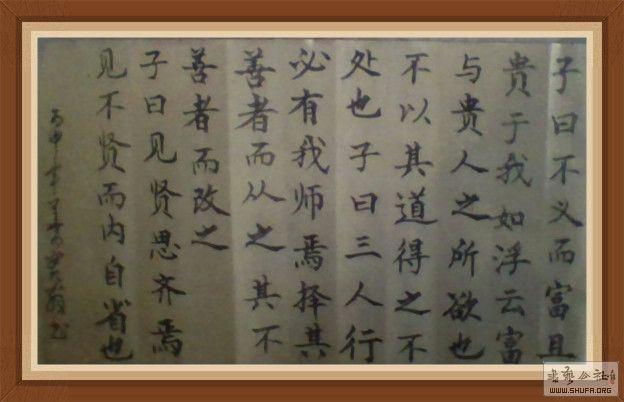 子曰不义而富且
贵于我如浮云富
与贵人之所欲也
不以其道得之不
处也子曰三人行
必有我师焉择其
善者而从之其不
善者而改之
子曰见贤思齐焉
见不贤而内自省也
丙申年
书艺公社
WWW.SHUFA.ORG